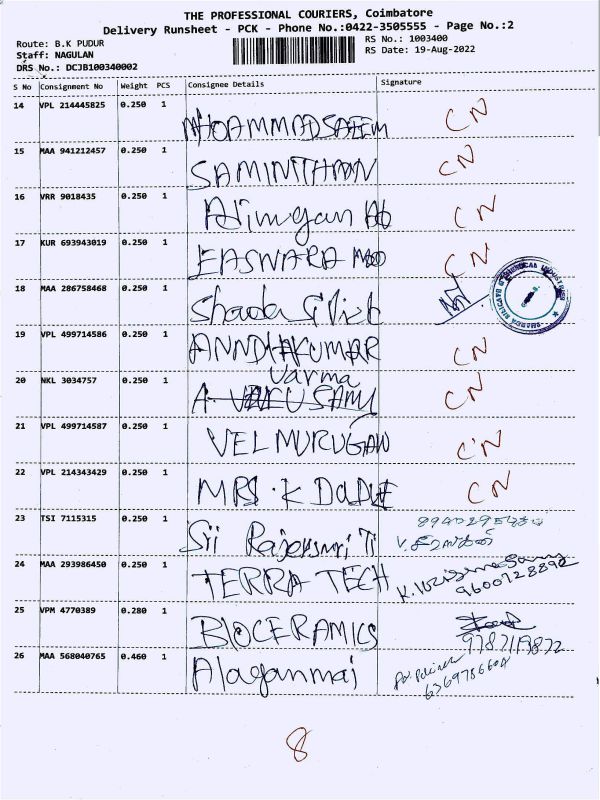 THE PROFESSIONAL COURIERS, Coimbatore
Delivery Runsheet - PCK - Phone No.:0422-3505555 - Page No.:2
Route: B.K PUDUR RS No.: 1003400
Staff: NAGULAN RS Date: 19-Aug-2022
DRS No.: DCJB100340002
S No Consignment No Weight PCS Consignee Details Signature
14 VPL 214445825 0.250 1
MHOAMMADSALEEM CN
15 MAA 941212457 0.250 1
SAMINATHAN CN
16 VRR 9018435 0.250 1
CN
17 KUR 693943019 0.250 1
EASWARA MOO CN
18 MAA 286758468 0.250 1
19 VPL 499714586 0.250 1
ANNDHAKUMAR CN
20 NKL 3034757 0.250 1
Varma
A. CN
21 VPL 499714587 0.250 1
VELMURUGAN CN
22 VPL 214343429 0.250 1
MRS. K CN
23 TSI 7115315 0.250 1
Sri
24 MAA 293986450 0.250 1
TERRA TECH
9600728892
25 VPM 4770389 0.280 1
BIOCERAMICS
26 MAA 568040765 0.460 1
Alaganmai
8